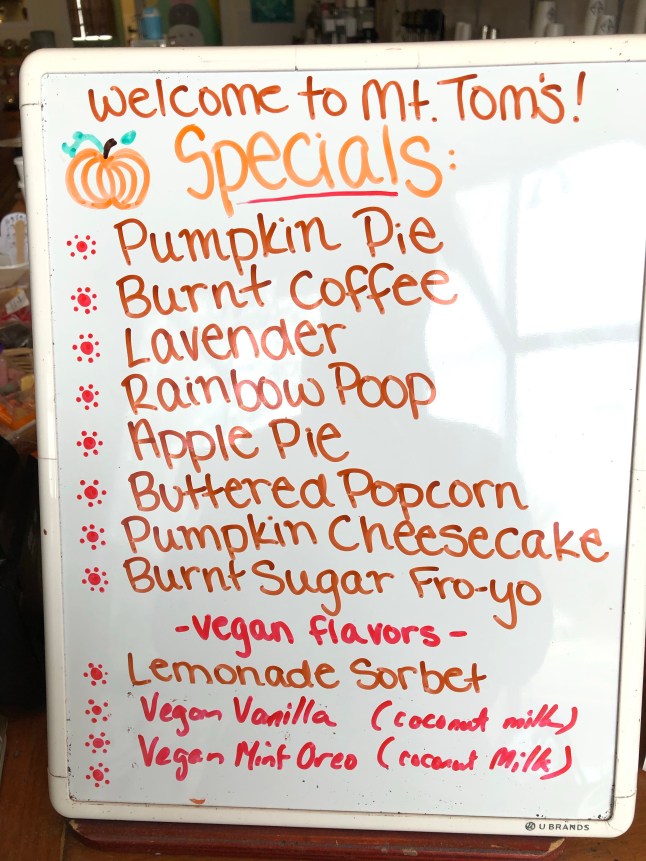 Welcome to Mt. Tom's!
Specials:
Pumpkin Pie
Burnt Coffee
Lavender
Rainbow Poop
Apple Pie
Buttered Popcorn
Pumpkin Cheesecake
Burnt Sugar Fro-yo
-vegan flavors-
Lemonade Sorbet
Vegan Vanilla (coconut milk)
Vegan Mint Oreo (coconut Milk)
U BRANDS